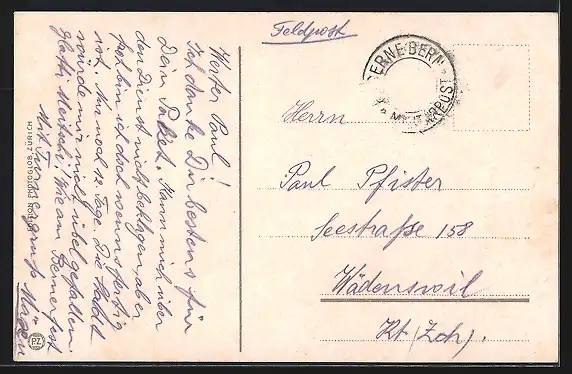 Feldpost
KASERNE BERN
MILITÄRPOST
Herrn
Paul Pfister
Seestraße 158
Wädenswil
Kt. (Zch).
Werter Paul!
Ich danke Dir bestens für
Dein Paket. Kann mich über
den Dienst nicht beklagen, aber
froh bin ich doch wenns fertig
ist. Nur noch 12 Tage. Die Stadt
würde mir nicht übel gefallen.
Glatti Meitschi! Wie am Bernerfest
Mit
gruß
PHOTOGLOB ZÜRICH
PZ